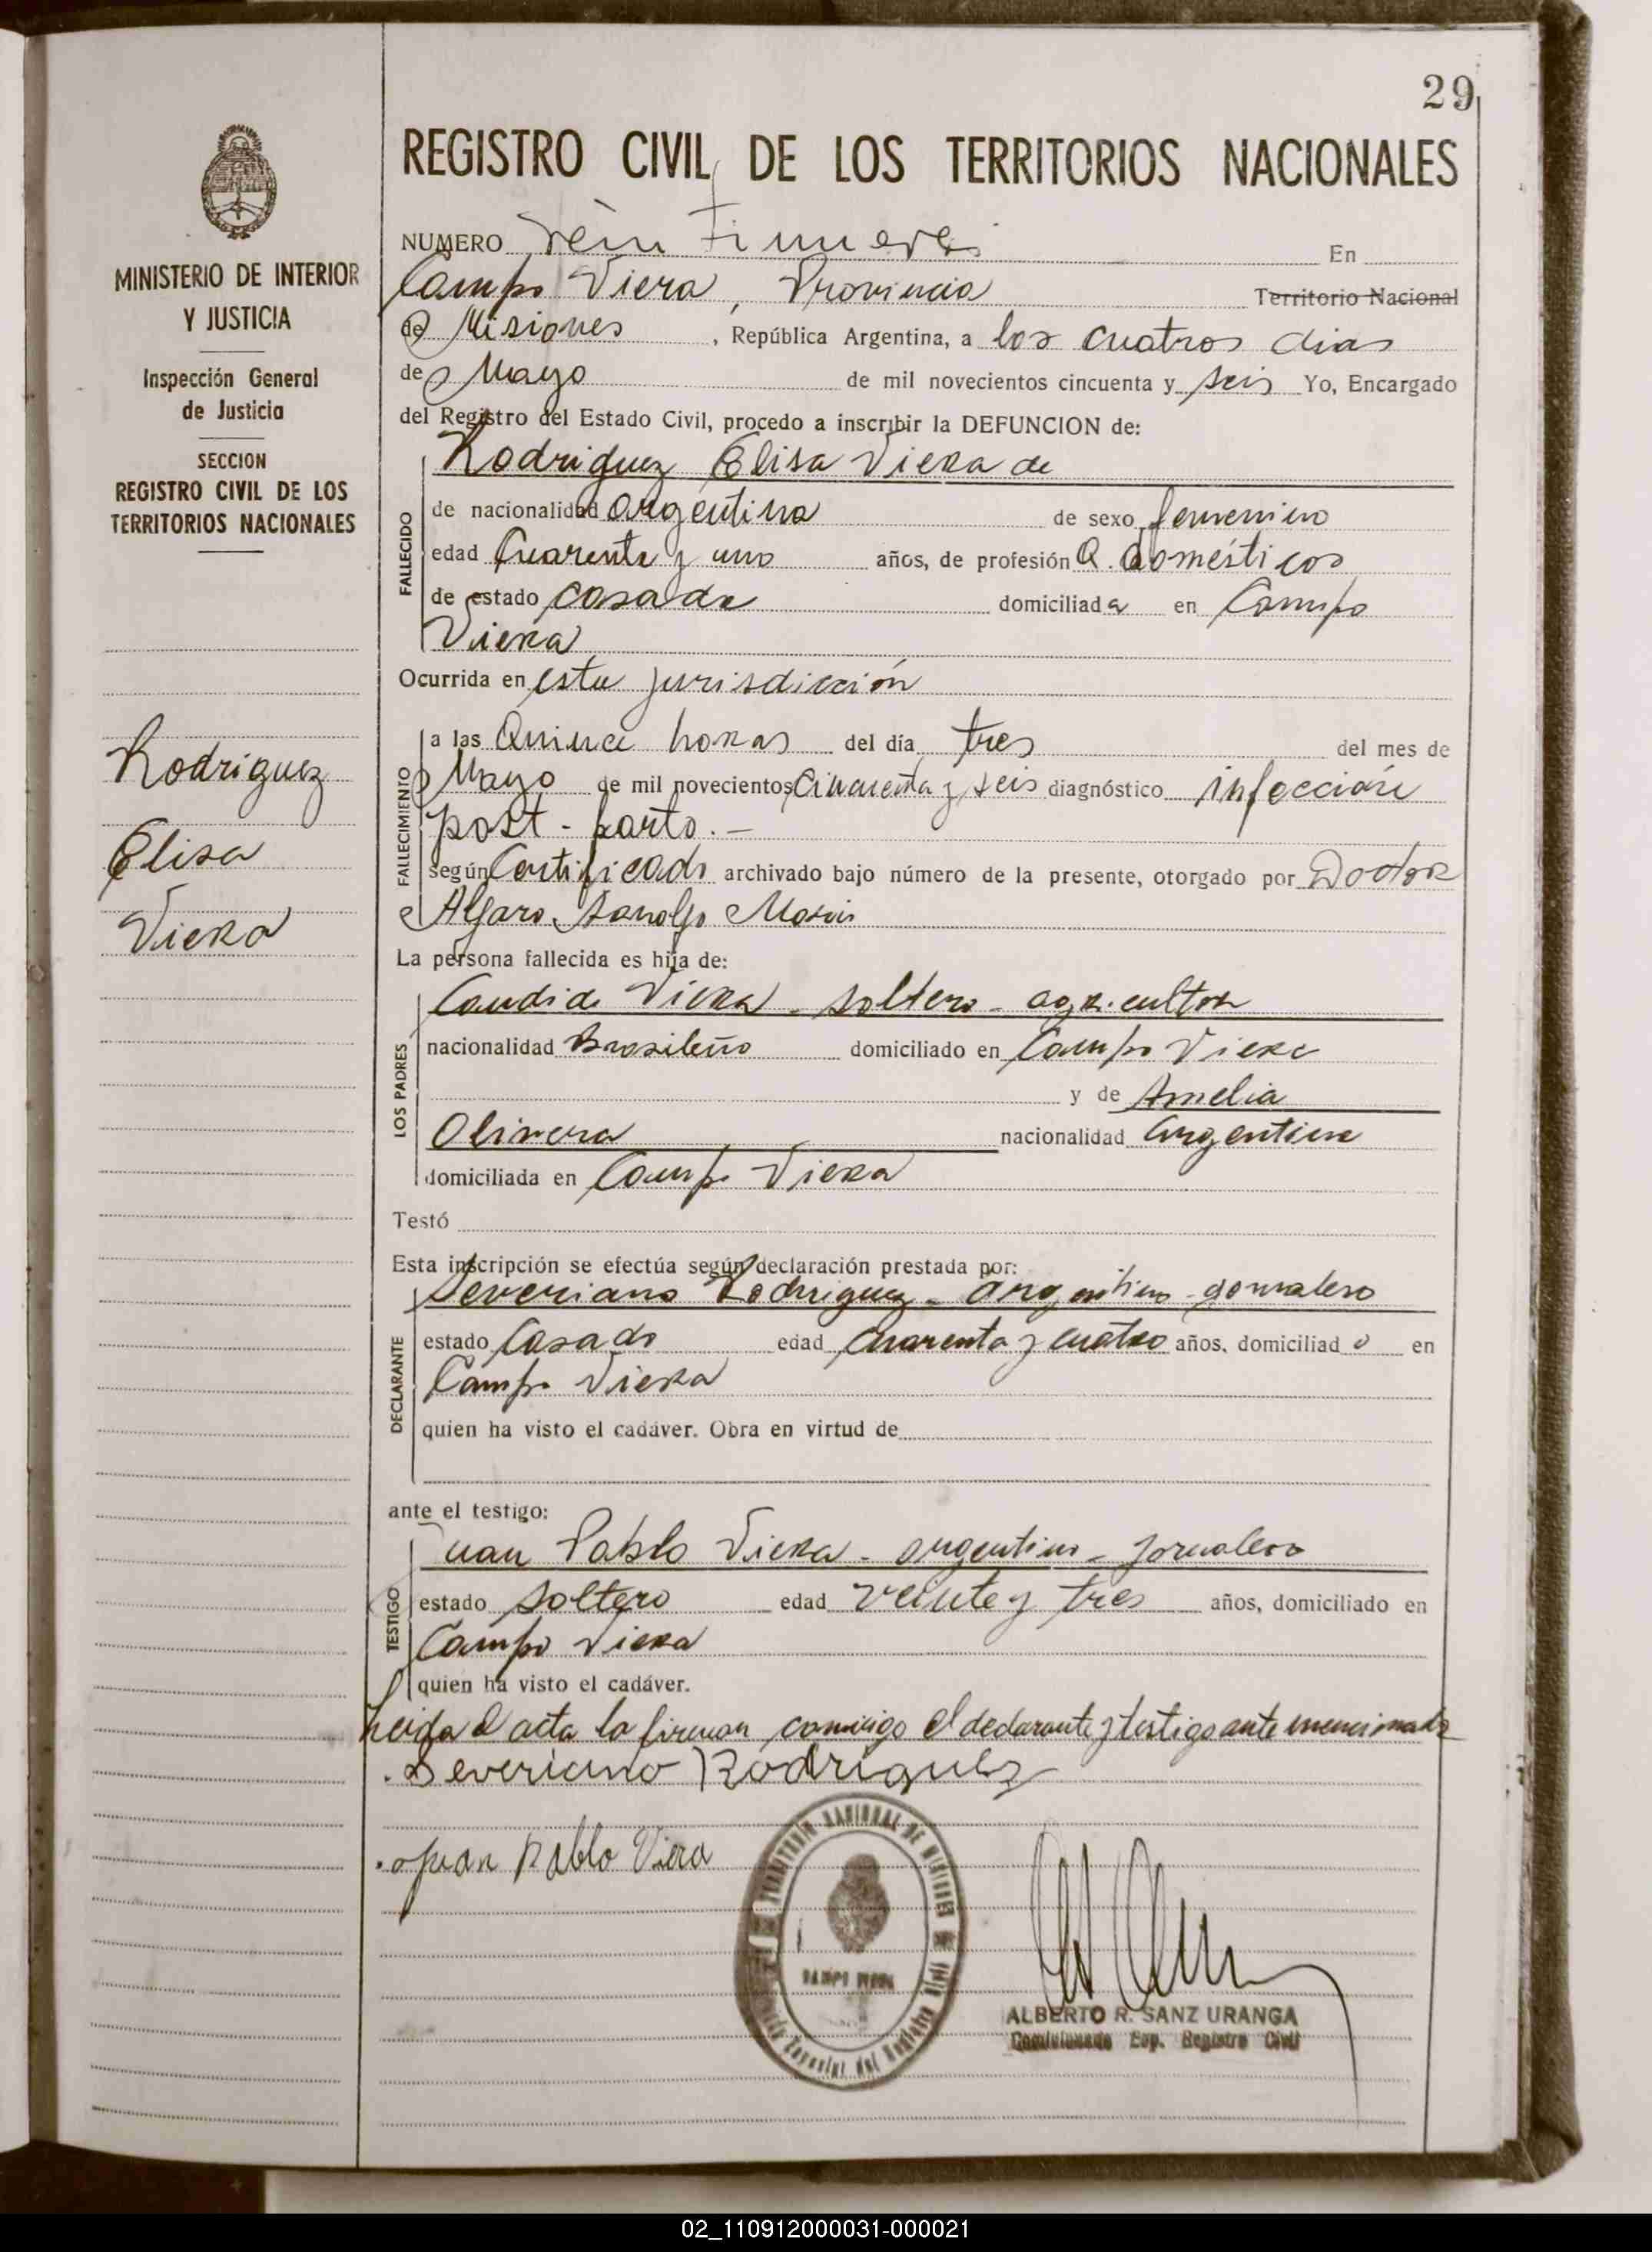 29
REGISTRO CIVIL DE LOS TERRITORIOS NACIONALES
MINISTERIO DE INTERIOR
Y JUSTICIA
Inspección General
de Justicia
SECCION
REGISTRO CIVIL DE LOS
TERRITORIOS NACIONALES
Rodriguez
Elisa
Viera
NUMERO En
Campo Viera, Provincia Territorio Nacional
de Misiones, República Argentina, a los cuatros dias
de Mayo de mil novecientos cincuenta y seis Yo, Encargado
del Registro del Estado Civil, procedo a inscribir la DEFUNCION de:
Rodriguez Elisa Viera de
FALLECIDO
de nacionalidad argentina de sexo femenino
edad Cuarenta y uno años, de profesión Q. domésticos
de estado casada domiciliada en Campo
Viera
Ocurrida en esta jurisdicción
FALLECIMIENTO
a las Quince horas del día tres del mes de
Mayo de mil novecientos cincuenta y seis diagnóstico infección
post-parto.-
según Certificado archivado bajo número de la presente, otorgado por Doctor
La persona fallecida es hija de:
LOS PADRES
Candido Viera - soltero - agricultor
nacionalidad Brasileño domiciliado en Campo Viera
y de Amelia
Olivera nacionalidad argentina
domiciliada en Campo Viera
Testó
Esta inscripción se efectúa según declaración prestada por:
DECLARANTE
Severiano Rodriguez - argentino - jornalero
estado Casado edad Cuarenta y cuatro años, domiciliado en
Campo Viera
quien ha visto el cadáver. Obra en virtud de
ante el testigo:
TESTIGO
Juan Pablo Viera - argentino - jornalero
estado soltero edad veinte y tres años, domiciliado en
Campo Viera
quien ha visto el cadáver.
Leida el acta la firman conmigo el declarante y testigo ante mencionado
Severiano Rodriguez
Juan Pablo Viera
TERRITORIO NACIONAL DE MISIONES
CAMPO VIERA
ALBERTO R. SANZ URANGA
Comisionado Esp. Registro Civil
02_110912000031-000021